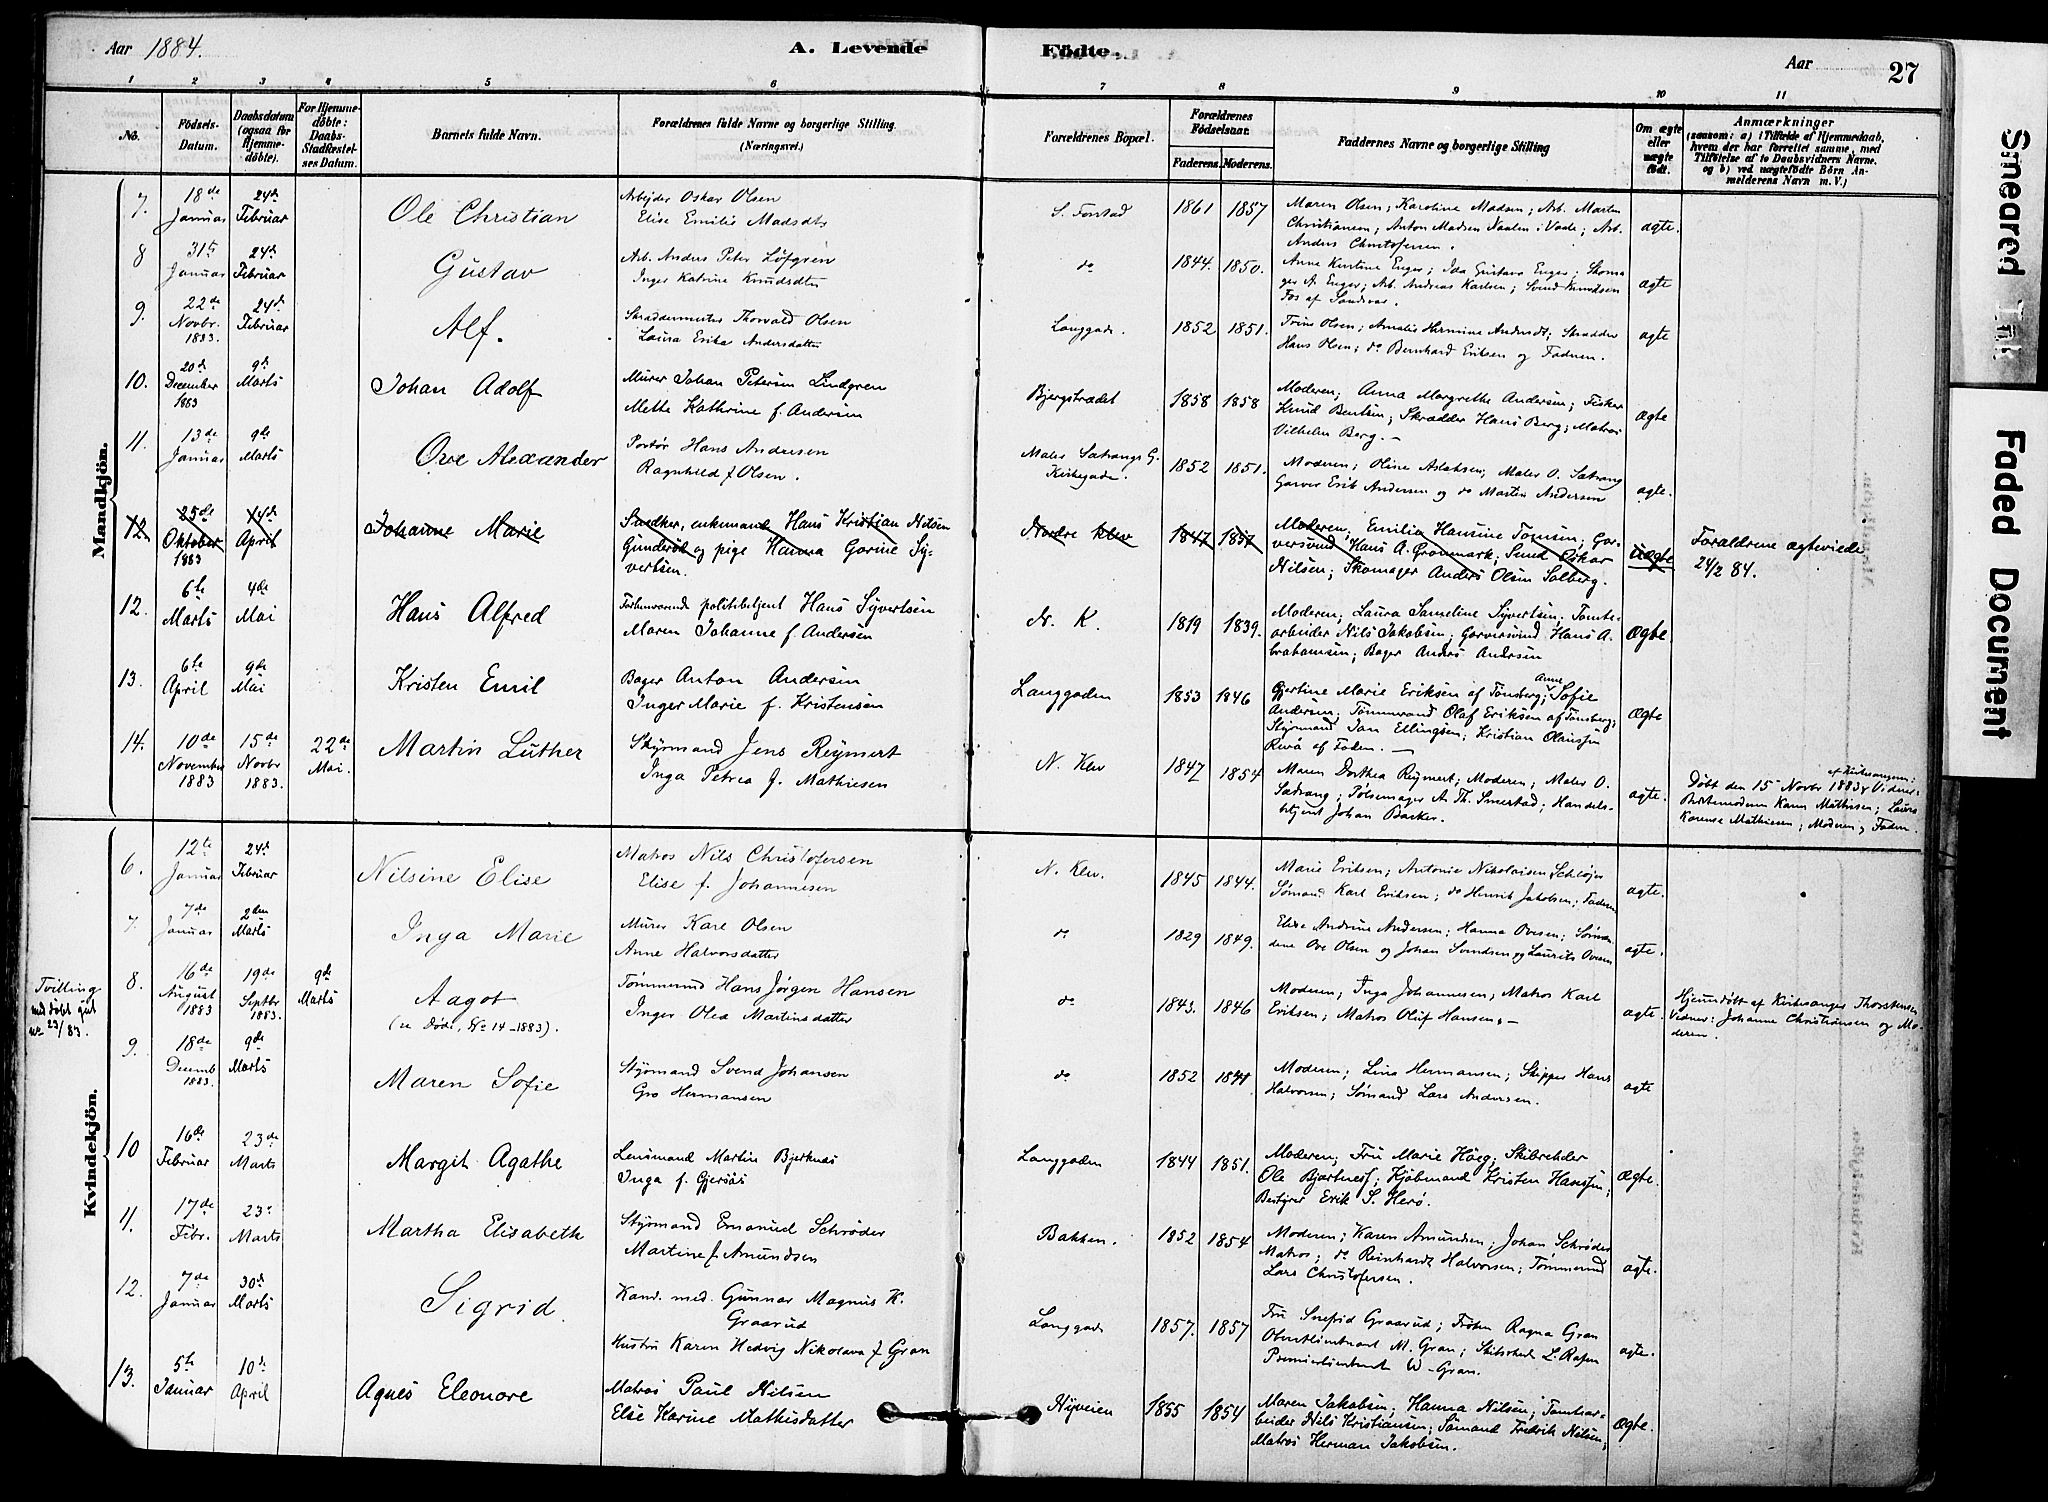 Aar 1884.
A. Levende Födte.
Aar
27
1 2 3 4 5 6 7 8 9 10 11
No.
Födsels-Datum.
Daabsdatum (ogsaa for Hjemmedöbte).
For Hjemmedöbte: Daabs-Stadfæstelses Datum.
Barnets fulde Navn.
Forældrenes fulde Navne og borgerlige Stilling. (Næringsvei.)
Forældrenes Bopæl.
Forældrenes Födselsaar.
Faderens. Moderens.
Faddernes Navne og borgerlige Stilling
Om ægte eller uægte födt.
Anmærkninger
(saasom: a) i Tilfælde af Hjemmedaab, hvem der har forrettet samme, med Tilföielse af to Daabsvidners Navne. og b) ved uægtefödte Börn Anmelderens Navn m. V.)
Mandkjön.
7. 18de Januar 24de Februar Ole Christian
Arbejder Oskar Olsen
Elise Emilie Madsdtr
S. Fonstad 1861 1857
Maren Olsen; Karoline Madsen; Arb. Martin
Christiansen; Anton Madsen Naalen i Vaale; Arb.
Anders Christofersen.
ægte.
8 31te Januar 24de Februar Gustav
Arb. Anders Peter Löfgren
Inger Katrine Knudsdtr
do 1844. 1850.
Anne Kirstine Enger; Ida Gustava Enger; Skoma
ger A. Enger; Arb. Andreas Karlsen; Svend Knudsen
Fos af Sandsvær.
ægte
9. 22de Novbr. 1883. 24de Februar Alf.
Skræddermester Thorvald Olsen
Laura Erika Andersdatter
Langgade. 1852 1851.
Trine Olsen; Amalie Hermine Andersdt; Skrædder
Hans Olsen; do Bernhard Eriksen og Faderen.
ægte
10. 20de December 1883 9de Marts Johan Adolf
Murer Johan Petersen Lindgren
Mette Kathrine f. Andersen
Bjergstrædet 1858 1858
Moderen; Anna Margrethe Andersen; Fisker
Knud Bentsen; Skrædder Hans Berg; Matros
Vilhelm Berg. —
Ægte
11. 13de Januar 9de Marts Ove Alexander
Portör Hans Andersen
Ragnhild f Olsen.
Maler Sætrangs G.
Kirkegade. 1852 1851.
Moderen; Oline Aslaksen; Maler O. Sætrang
Garver Erik Andersen og do Martin Andersen
ægte.
12. 25de Oktober 1883 14de April Johanne Marie
Snedker, enkemand Hans Kristian Nilsen
Gunderöd og pige Hanna Gorine Sy-
vertsen.
Nordre klev 1847 1857
Moderen, Emilie Hansine Tomsen; Gar-
versvend Hans A. Grönmark; Smed Oskar
Nilsen; Skomager Anders Olsen Solberg.
uægte
Forældrene ægteviede
24/2 84.
12. 6te Marts 4de Mai Hans Alfred
Forhenværende politibetjent Hans Syvertsen
Maren Johanne f. Andersen
N. K. 1819 1839.
Moderen; Laura Samueline Syvertsen; Tomte-
arbeider Nils Jakobsen; Garversvend Hans A-
brahamsen; Bager Anders Andersen
Ægte
13. 6te April 9de Mai Kristen Emil
Bager Anton Andersen
Inger Marie f. Kristensen
Langgaden 1853 1846
Gjertine Marie Eriksen af Tönsberg; Anne Sofie
Andersen; Tömmermand Olaf Eriksen af Tönsberg;
Styrmand Jan Ellingsen; Kristian Olaussen
Revå af Faden. —
Ægte
14. 10de November 1883 15de Novbr 1883. 22de Mai. Martin Luther
Styrmand Jens Reymert
Inga Petrea f. Mathiesen
N. Klev 1847 1854
Maren Dorthea Reymert; Moderen; Maler O.
Sætrang; Pölsemager A. Th. Smerstad; Handels-
betjent Johan Backer.
ægte.
Döbt den 15 Novbr 1883 af Kirkesangeren; Vidner:
Karen Mathisen; Laura
Karense Mathiesen; Moderen og Faderen.
Kvindekjön.
6. 12te Januar 24de Februar Nilsine Elise
Matros Nils Christofersen
Elise f. Johannesen
N. Klev. 1845 1844.
Marie Eriksen; Antonie Nikolaisen Schlöjer
Sömand Karl Eriksen; do Henrik Jakobsen; Faderen
ægte.
7. 7de Januar 2den Marts Inga Marie
Murer Karl Olsen
Anne Halvorsdatter
do 1829 1849.
Elise Andrine Andersen; Hanna Ovesen; Sömæn-
dene Ove Olsen og Johan Svendsen og Laurits Ovesen
ægte.
Tvilling med död gut no 23/83.
8. 16de August 1883 19de Septbr 1883. 9de Marts Aagot
(se Döde, No 14-1883).
Tömmermd Hans Jörgen Hansen
Inger Olea Martinsdatter
do 1843. 1846
Moderen; Inga Johannesen; Matros Karl
Eriksen; Matros Oluf Hansen. —
ægte.
Hjemmedöbt af Kirkesanger Thorstensen
Vidner: Johanne Christiansen og Mo-
deren.
9. 18de Decemb 1883. 9de Marts Maren Sofie
Styrmand Svend Johansen
Gro Hermansen
do 1852 1841
Moderen; Lina Hermansen; Skipper Hans
Halvorsen; Sömand Lars Andersen.
ægte
10 16de Februar 23de Marts Margit Agathe
Lensmand Martin Bjerknæs
Inga f. Gjersöe
Langgaden 1844 1851.
Moderen; Fru Marie Höeg; Skibsrheder
Ole Bjerkness; Kjöbmand Kristen Hanssen;
Bestyrer Erik S. Herö.
Ægte.
11. 17de Febr. 23de Marts Martha Elisabeth
Styrmand Emanuel Schröder
Martine f. Amundsen
Bakken. 1852 1854
Moderen; Karen Amundsen; Johan Schröder
Matros; do Reinhardt Halvorsen; Tömmermd
Lars Christofersen.
ægte.
12. 7de Januar 30de Marts Sigrid.
Kand. med. Gunnar Magnus K.
Graarud
Hustru Karen Hedvig Nikolava f Gran
Langgade 1857. 1857
Fru Snefrid Graarud; Fröken Ragna Gran
Oberstlieutnant M. Gran; Skibsrhed. L. Rafen
Premierlieutenant W. Gran.
ægte.
13. 5te Januar 10de April Agnes Eleonore
Matros Paul Nilsen
Else Karine Mathisdatter
Nyveien 1855 1854
Maren Jakobsen; Hanna Nilsen; Tomtear-
beider Nils Kristiansen; Sömand Fredrik Nilsen;
Matros Herman Jakobsen.
Ægte.
Smeared Ink
Faded Document